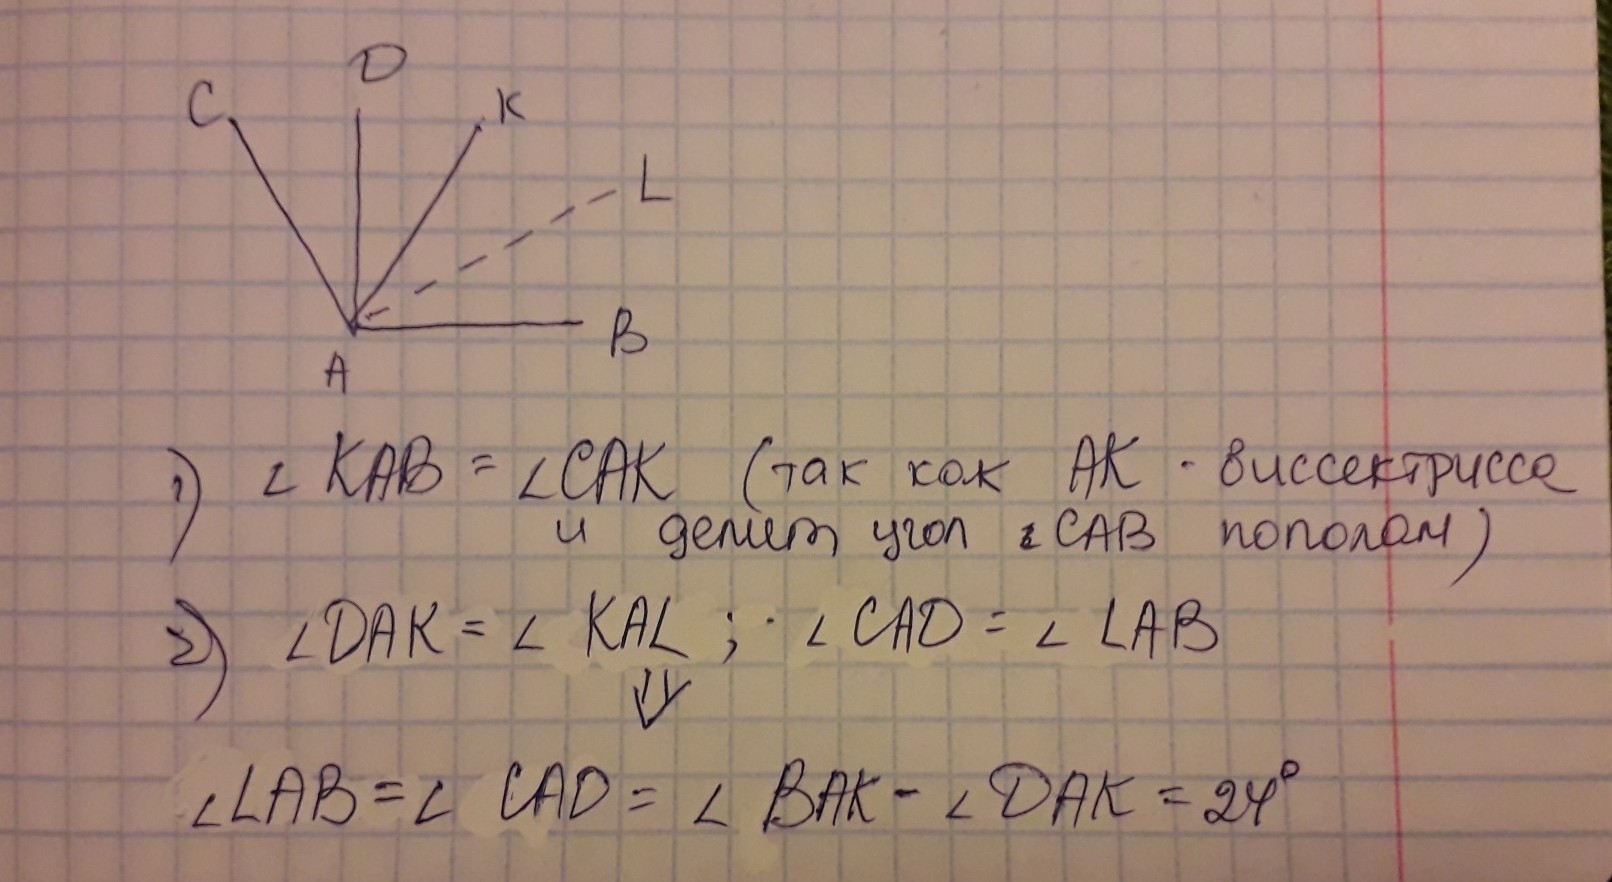 D
C
K
L
B
A
1) ∠ KAB = ∠CAK (так как AK - биссектрисса
и делит угол ∠CAB пополам)
2) ∠DAK = ∠ KAL ; ∠ CAD = ∠ LAB
⇓
∠LAB = ∠ CAD = ∠ BAK - ∠ DAK = 24°